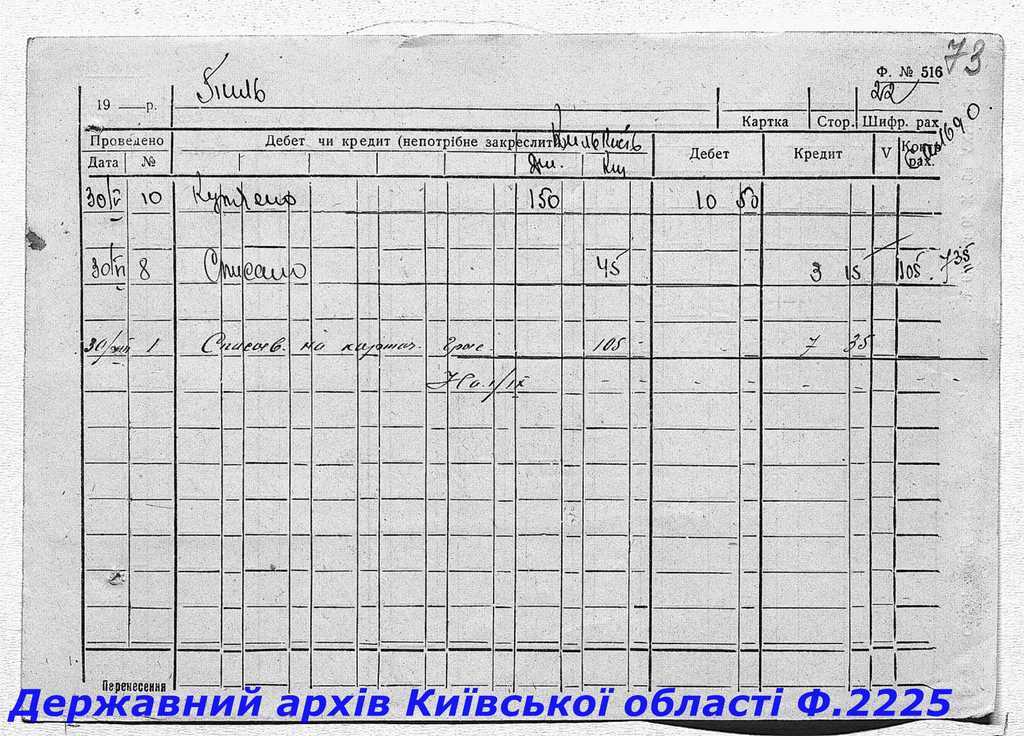 73
Ф. № 516
22
19 — р.
Картка Стор. Шифр. рах.
1690
Проведено Дебет чи кредит (непотрібне закреслити) Кількість Дебет Кредит V Контр. рах.
Дата № Дт. Кт
30/V 10 Куплено 150 10 50
30/VI 8 Списано 45 3 15 105. 7 35
30/VIII 1 Списав. на карточ. 105 7 35
На 1/IX - - - - - - -
Перенесення
Державний архів Київської області Ф.2225